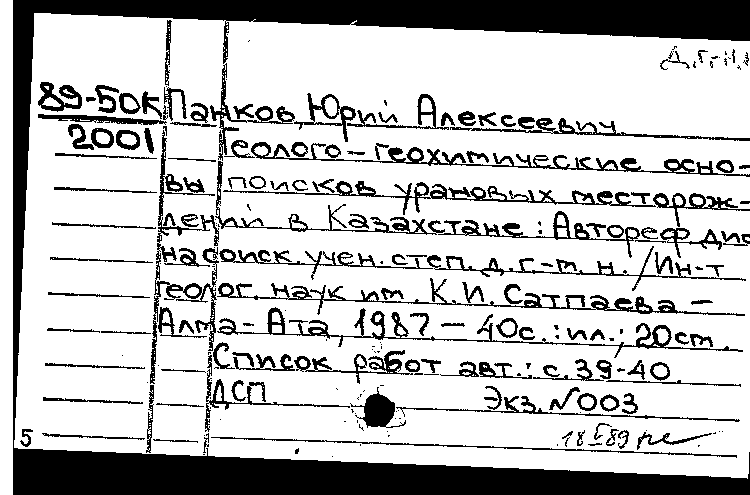 Д.г.-м.н.
89-50К Панков, Юрий Алексеевич.
2001 Геолого-геохимические осно-
вы поисков урановых месторож-
дений в Казахстане : Автореф. дис
на соиск. учен. степ. д. г.-м. н. / Ин-т
геолог. наук им. К. И. Сатпаева –
Алма-Ата, 1987. – 40с. : ил.; 20 см.
Список работ авт.: с. 39-40.
ДСП. Экз. №003
5 18 I 89